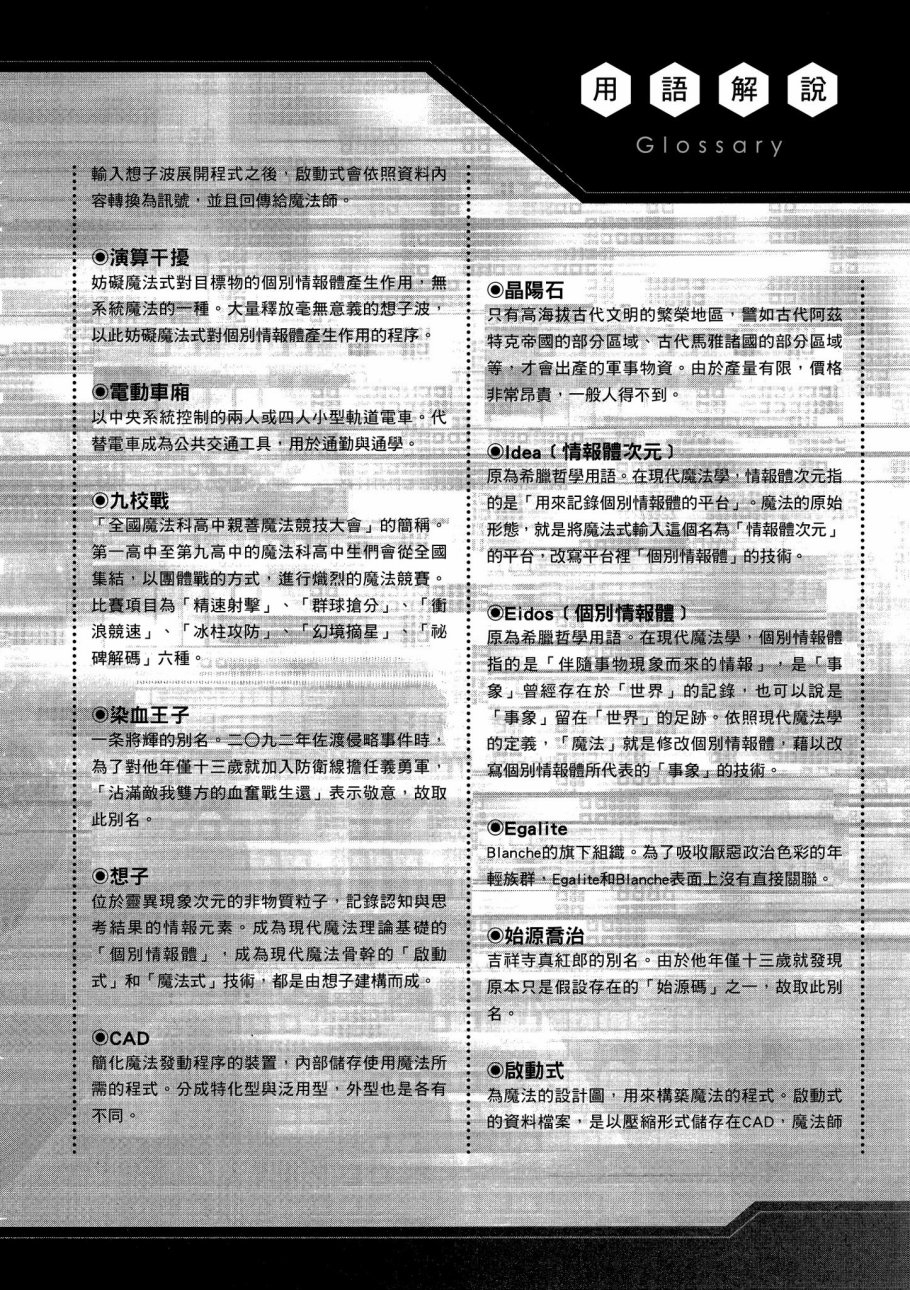 用語解說
Glossary
◉晶陽石
只有高海拔古代文明的繁榮地區，譬如古代阿茲
特克帝國的部分區域、古代馬雅諸國的部分區域
等，才會出產的軍事物資。由於產量有限，價格
非常昂貴，一般人得不到。
◉Idea﹝情報體次元﹞
原為希臘哲學用語。在現代魔法學，情報體次元指
的是「用來記錄個別情報體的平台」。魔法的原始
形態，就是將魔法式輸入這個名為「情報體次元」
的平台，改寫平台裡「個別情報體」的技術。
◉Eidos﹝個別情報體﹞
原為希臘哲學用語。在現代魔法學，個別情報體
指的是「伴隨事物現象而來的情報」，是「事
象」曾經存在於「世界」的記錄，也可以說是
「事象」留在「世界」的足跡。依照現代魔法學
的定義，「魔法」就是修改個別情報體，藉以改
寫個別情報體所代表的「事象」的技術。
◉Egalite
Blanche的旗下組織。為了吸收厭惡政治色彩的年
輕族群，Egalite和Blanche表面上沒有直接關聯。
◉始源喬治
吉祥寺真紅郎的別名。由於他年僅十三歲就發現
原本只是假設存在的「始源碼」之一，故取此別
名。
◉啟動式
為魔法的設計圖，用來構築魔法的程式。啟動式
的資料檔案，是以壓縮形式儲存在CAD，魔法師
輸入想子波展開程式之後，啟動式會依照資料內
容轉換為訊號，並且回傳給魔法師。
◉演算干擾
妨礙魔法式對目標物的個別情報體產生作用，無
系統魔法的一種。大量釋放毫無意義的想子波，
以此妨礙魔法式對個別情報體產生作用的程序。
◉電動車廂
以中央系統控制的兩人或四人小型軌道電車。代
替電車成為公共交通工具，用於通勤與通學。
◉九校戰
「全國魔法科高中親善魔法競技大會」的簡稱。
第一高中至第九高中的魔法科高中生們會從全國
集結，以團體戰的方式，進行熾烈的魔法競賽。
比賽項目為「精速射擊」、「群球搶分」、「衝
浪競速」、「冰柱攻防」、「幻境摘星」、「祕
碑解碼」六種。
◉染血王子
一条將輝的別名。二〇九二年佐渡侵略事件時，
為了對他年僅十三歲就加入防衛線擔任義勇軍，
「沾滿敵我雙方的血奮戰生還」表示敬意，故取
此別名。
◉想子
位於靈異現象次元的非物質粒子，記錄認知與思
考結果的情報元素。成為現代魔法理論基礎的
「個別情報體」，成為現代魔法骨幹的「啟動
式」和「魔法式」技術，都是由想子建構而成。
◉CAD
簡化魔法發動程序的裝置，內部儲存使用魔法所
需的程式。分成特化型與泛用型，外型也是各有
不同。